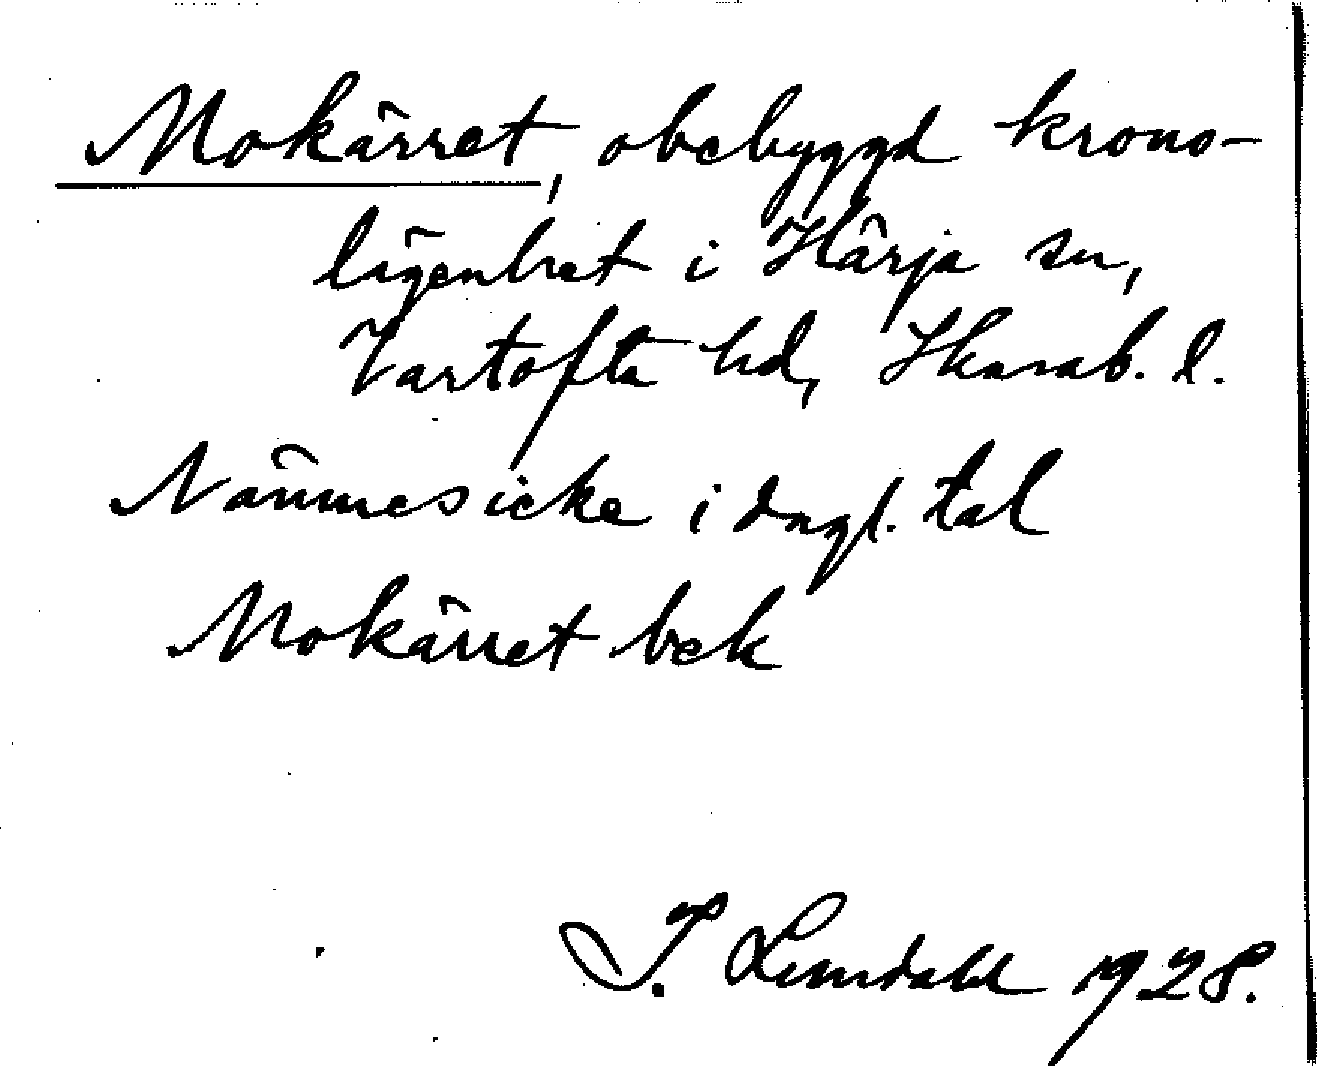 Mokärret, obebyggd krono-
lägenhet i Härja sn,
Vartofta hd, Skarab. l.
Nämnes icke i dagl. tal
Mokärret bek
J. Lindahl 1928.